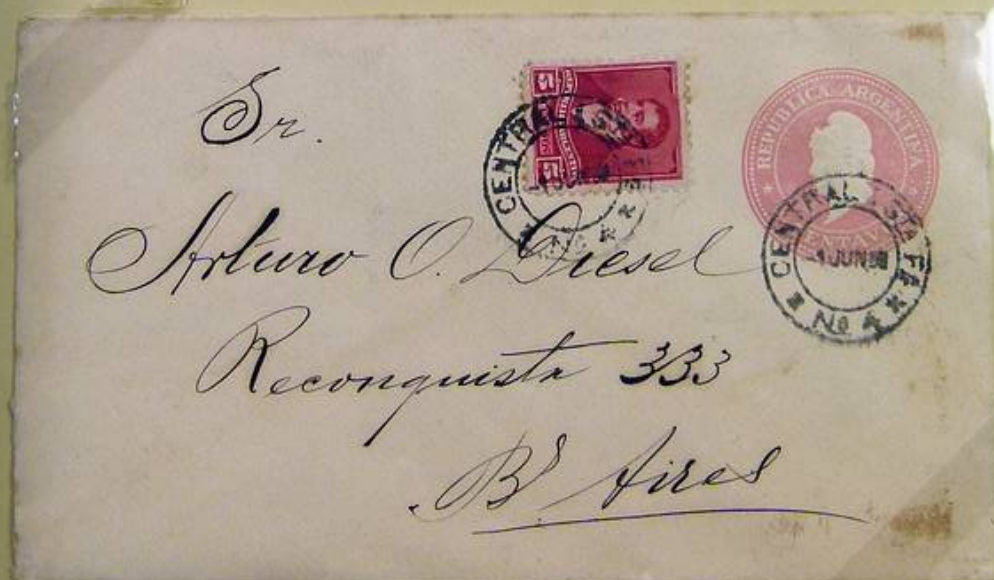 Sr.
Arturo O. Diesel
Reconquista 333
Bs Aires
REPUBLICA ARGENTINA
CENTRAL Sta FÉ
1 JUN 98
No 4
CENTRAL
5
5